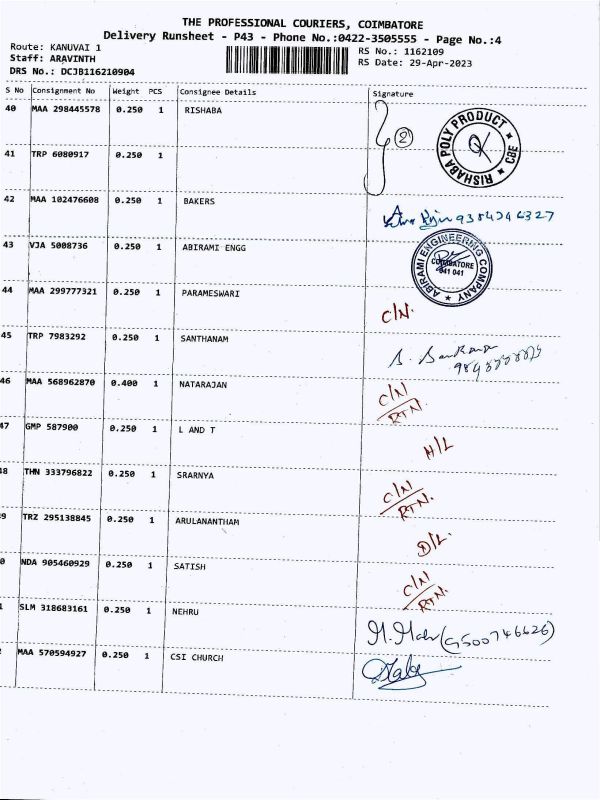 THE PROFESSIONAL COURIERS, COIMBATORE
Delivery Runsheet - P43 - Phone No.:0422-3505555 - Page No.:4
Route: KANUVAI 1
RS No.: 1162109
Staff: ARAVINTH
RS Date: 29-Apr-2023
DRS No.: DCJB116210904
S No Consignment No Weight PCS Consignee Details Signature
40 MAA 298445578 0.250 1 RISHABA
2
RISHABA POLY PRODUCT ★ CBE ★
41 TRP 6080917 0.250 1
42 MAA 102476608 0.250 1 BAKERS
43 VJA 5008736 0.250 1 ABIRAMI ENGG
ABIRAMI ENGINEERING COMPANY ★
COIMBATORE
641 041
44 MAA 299777321 0.250 1 PARAMESWARI C/N.
45 TRP 7983292 0.250 1 SANTHANAM
46 MAA 568962870 0.400 1 NATARAJAN C/N
RTN.
47 GMP 587900 0.250 1 L AND T H/L
48 THN 333796822 0.250 1 SRARNYA C/N
RTN.
9 TRZ 295138845 0.250 1 ARULANANTHAM D/L
0 NDA 905460929 0.250 1 SATISH C/N
RTN.
1 SLM 318683161 0.250 1 NEHRU (9500746626)
MAA 570594927 0.250 1 CSI CHURCH